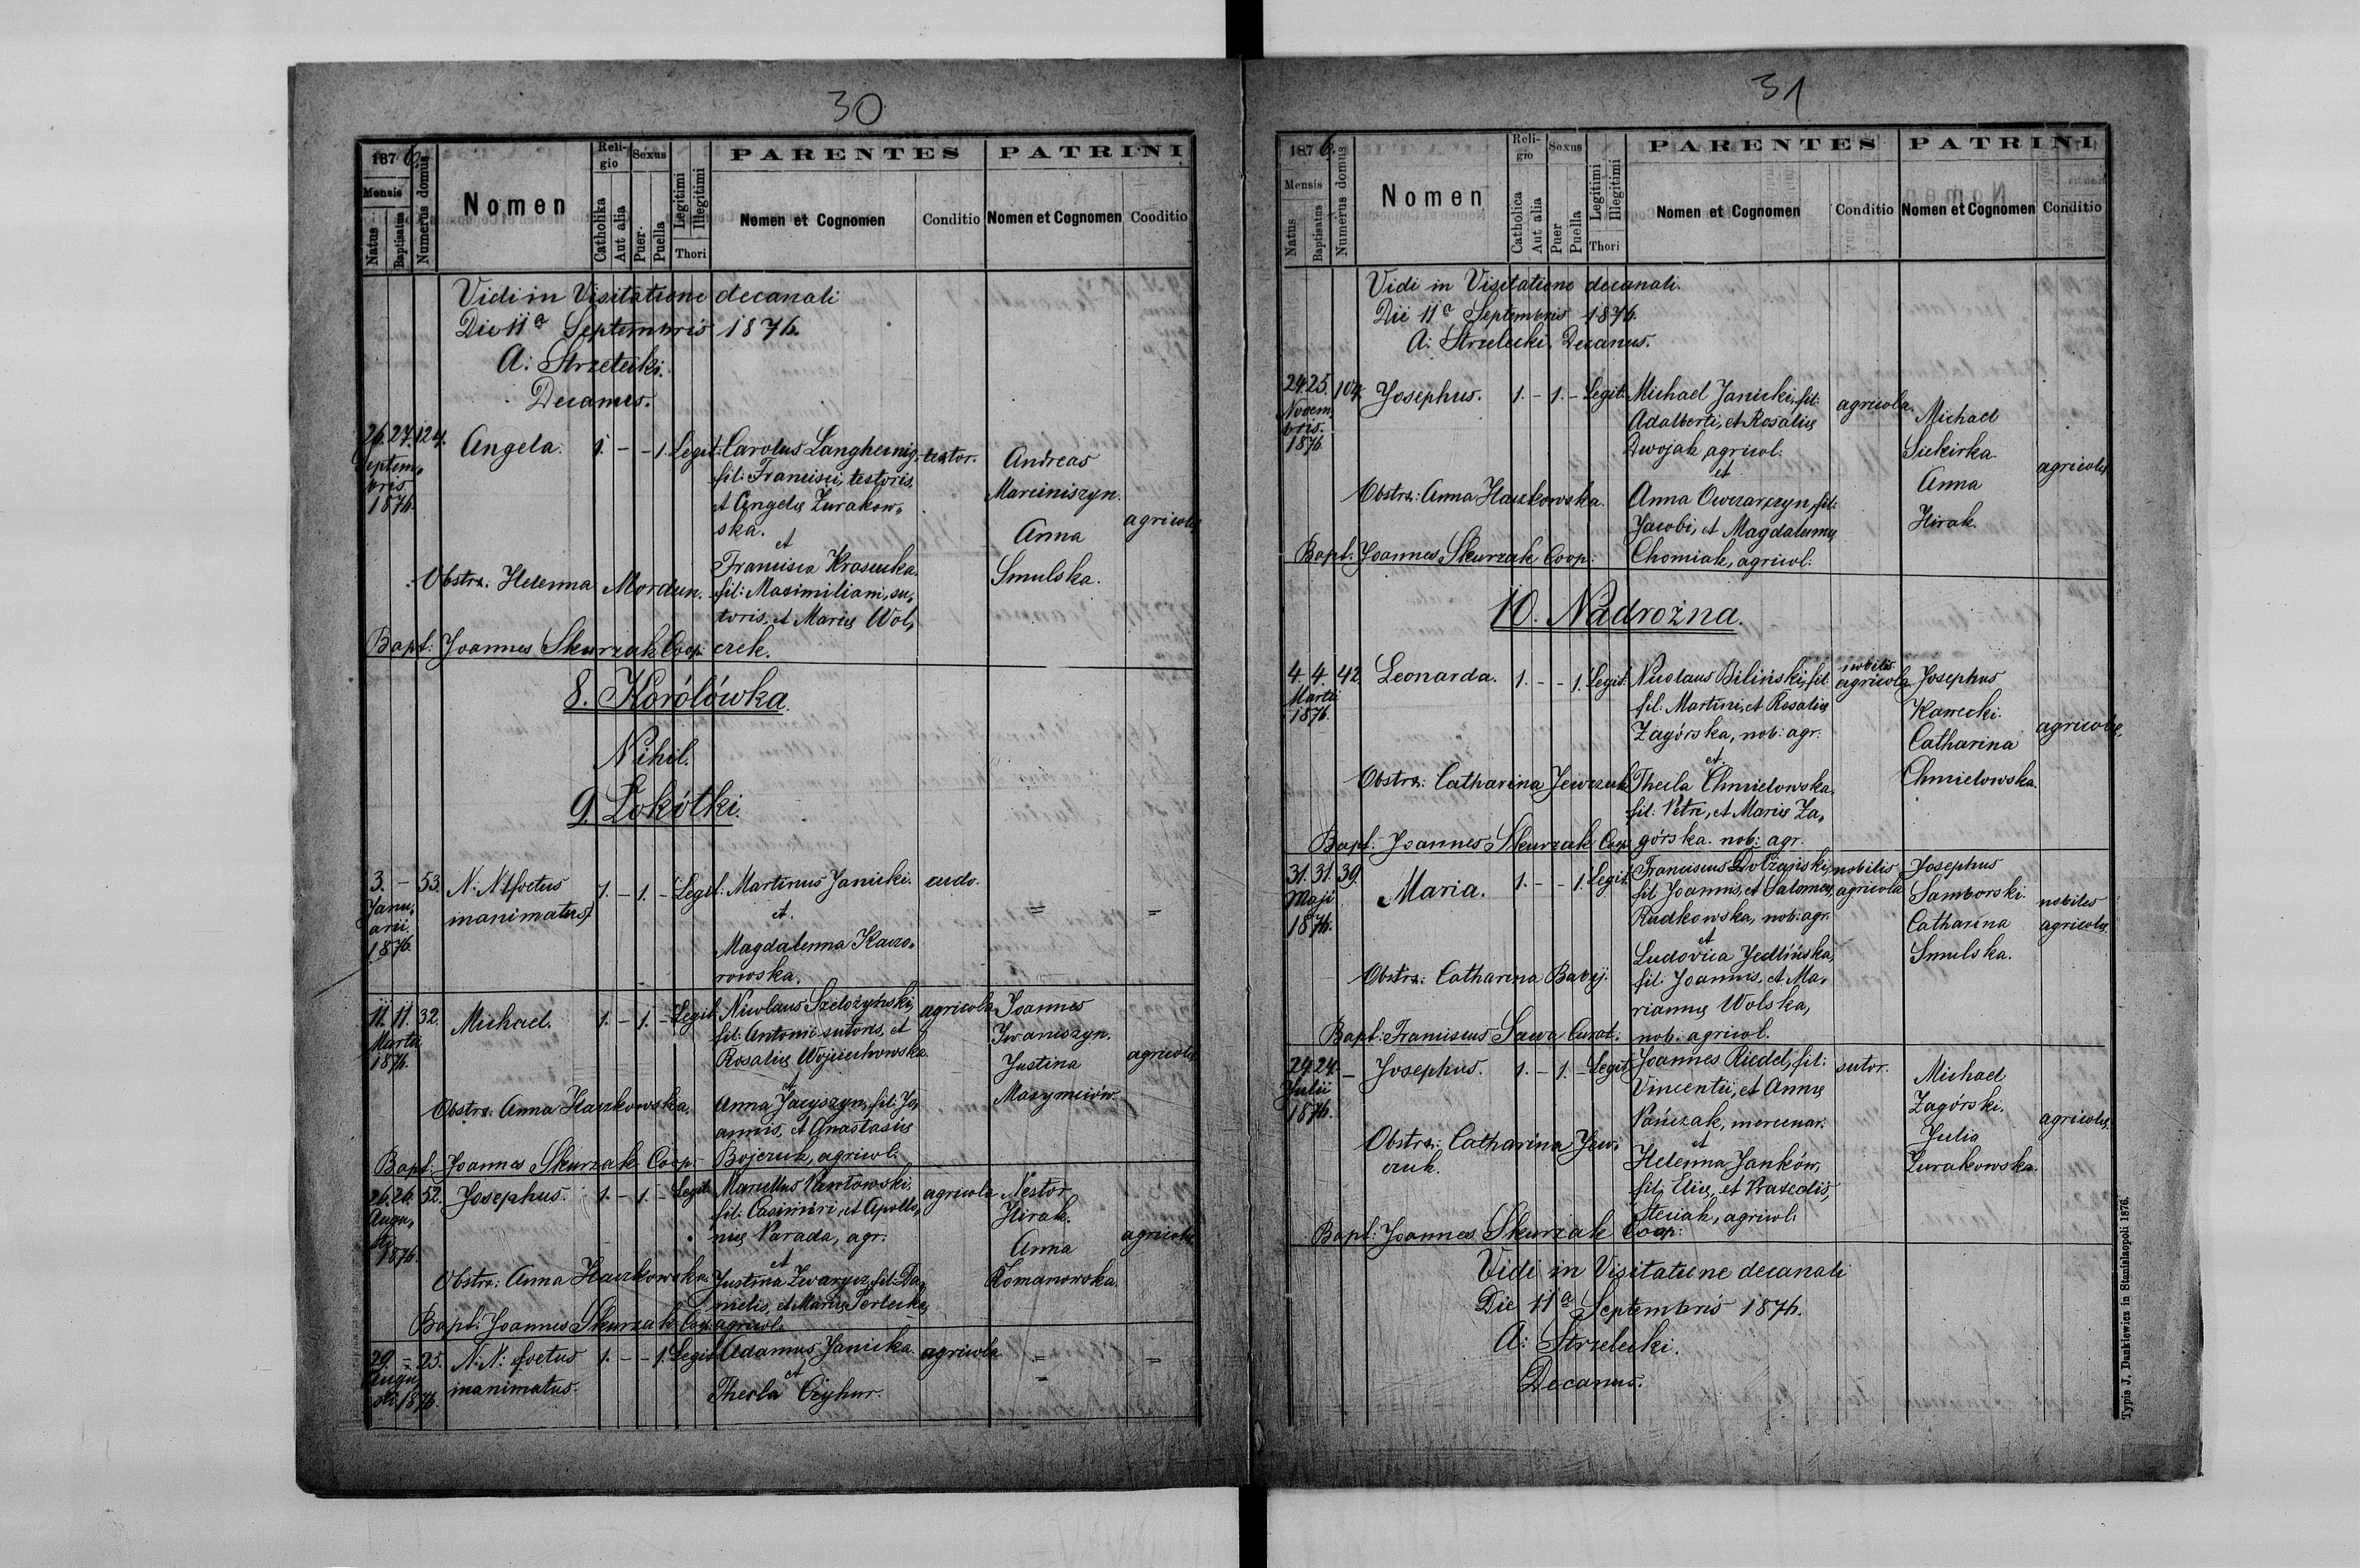 30
1876.
Mensis
Natus
Baptisatus
Numerus domus
Nomen
Religio
Catholika
Aut alia
Sexus
Puer.
Puella
Legitimi
Illegitimi
Thori
PARENTES
Nomen et Cognomen
Conditio
PATRINI
Nomen et Cognomen
Cooditio
Vidi in Visitatione decanali
Die 11a Septembris 1876.
A: Strzelecki.
Decanus.
26. 27. 124. Angela. 1. - - 1. Legit: Carolus Langheinig, textor. Andreas
Septem„ fil: Francisci, textoris, Marciniszyn.
bris et Angelæ Żurakow„ agricolæ
1876. ska. Anna
et
Francisca Krasucka. Smulska.
Obstrx. Helenna Mordun. fil: Maximiliani, su„
toris, et Mariæ Wol„
Bapt: Joannes Skurzak Coop: czek.
8. Korólówka.
Nihil.
9. Łokótki.
3. - 53. N: N: foetus 1. - 1. - Legit: Martinus Janicki. cudo.
Janu„ inanimatus. et. = =
arii. Magdalenna Kaczo„
1876. rowska.
11. 11. 32. Michael. 1. - 1. - Legit. Nicolaus Szelożyński, agricola Joannes
Martii fil: Antonii sutoris, et Iwaniszyn.
1876. Rosaliæ Wojciechowska. Justina agricolæ
et
Obstrx: Anna Haczkowska. Anna Jacyszyn, fil: Jo„ Maxymców.
annis, et Anastasiæ
Bapt: Joannes Skurzak Coop: Bojczuk, agricol.
26. 26. 52. Josephus. 1. - 1. - Legit: Marcellus Pawłowski. agricola Nestor
Augu„ fil: Casimiri, et Apollo„ Hirak.
sti niæ Parada, agr: Anna agricolæ
1876. et
Obstrx: Anna Haczkowska. Justina Zwarycz, fil: Da„ Romanowska.
nielis, et Mariæ Terlecka,
Bapt: Joannes Skurzak Coop: agricol.
29. - 25. N: N: foetus 1. - - 1. Legit Adamus Janicka agricola = =
Augu„ inanimatus. et =
sti. 1876. Thecla Czyhur.
31
1876.
Mensis
Natus
Baptisatus
Numerus domus
Nomen
Religio
Catholica
Aut alia
Sexus
Puer
Puella
Legitimi
Illegitimi
Thori
PARENTES
Nomen et Cognomen
Conditio
PATRINI
Nomen et Cognomen
Conditio
Vidi in Visitatione decanali.
Die 11a Septembris 1876.
A: Strzelecki. Decanus.
24. 25. 104. Josephus. 1. - 1. - Legit: Michael Janicki, fil: agricola. Michael
Novem„ Adalberti, et Rosaliæ Sickirka.
bris. Dwojak, agricol: agricolæ
1876. et Anna
Obstrx: Anna Haczkowska. Anna Owczarczyn, fil: Hirak.
Jacobi, et Magdalennæ
Bapt: Joannes Skurzak Coop: Chomiak, agricol:
10. Nadrożna.
4. 4. 42. Leonarda. 1. - - 1. Legit: Nicolaus Biliński, fil: nobilis agricola Josephus
Martii fil: Martini, et Rosaliæ Kawecki.
1876. Zagórska, nob: agr: Catharina agricolæ.
et.
Obstrx: Catharina Jewczuk. Thecla Chmielowska. Chmielowska.
fil: Petri, et Mariæ Za„
Bapt: Joannes Skurzak Coop: górska. nob: agr.
31. 31. 39. Maria. 1. - - 1. Legit: Franciscus Dolżański, nobilis Josephus
Maji fil: Joannis, et Salomeæ, agricola Samborski. nobiles
1876. Rudkowska, nob: agr. Catharina agricolæ.
et
Ludovica Jedlińska, Smulska.
Obstrx: Catharina Baryj. fil: Joannis, et Ma„
riannæ Wolska,
Bapt: Franciscus Sawa Curat: nob: agricol.
24. 24. - Josephus. 1. - 1. - Legit: Joannes Riedel, fil: sutor. Michael
Julii Vincentii, et Annæ Zagórski.
1876. Pańczak, mercenar: Julia agricolæ.
Obstrx: Catharina Jew„ et
czuk. Helenna Janków, Żurakowska.
fil: Eliæ, et Praxedis,
Steciak, agricol:
Bapt: Joannes Skurzak Coop:
Vidi in Visitatione decanali
Die 11a Septembris 1876.
A: Strzelecki.
Decanus.
Typis J. Dankiewicz in Stanislaopoli 1876.